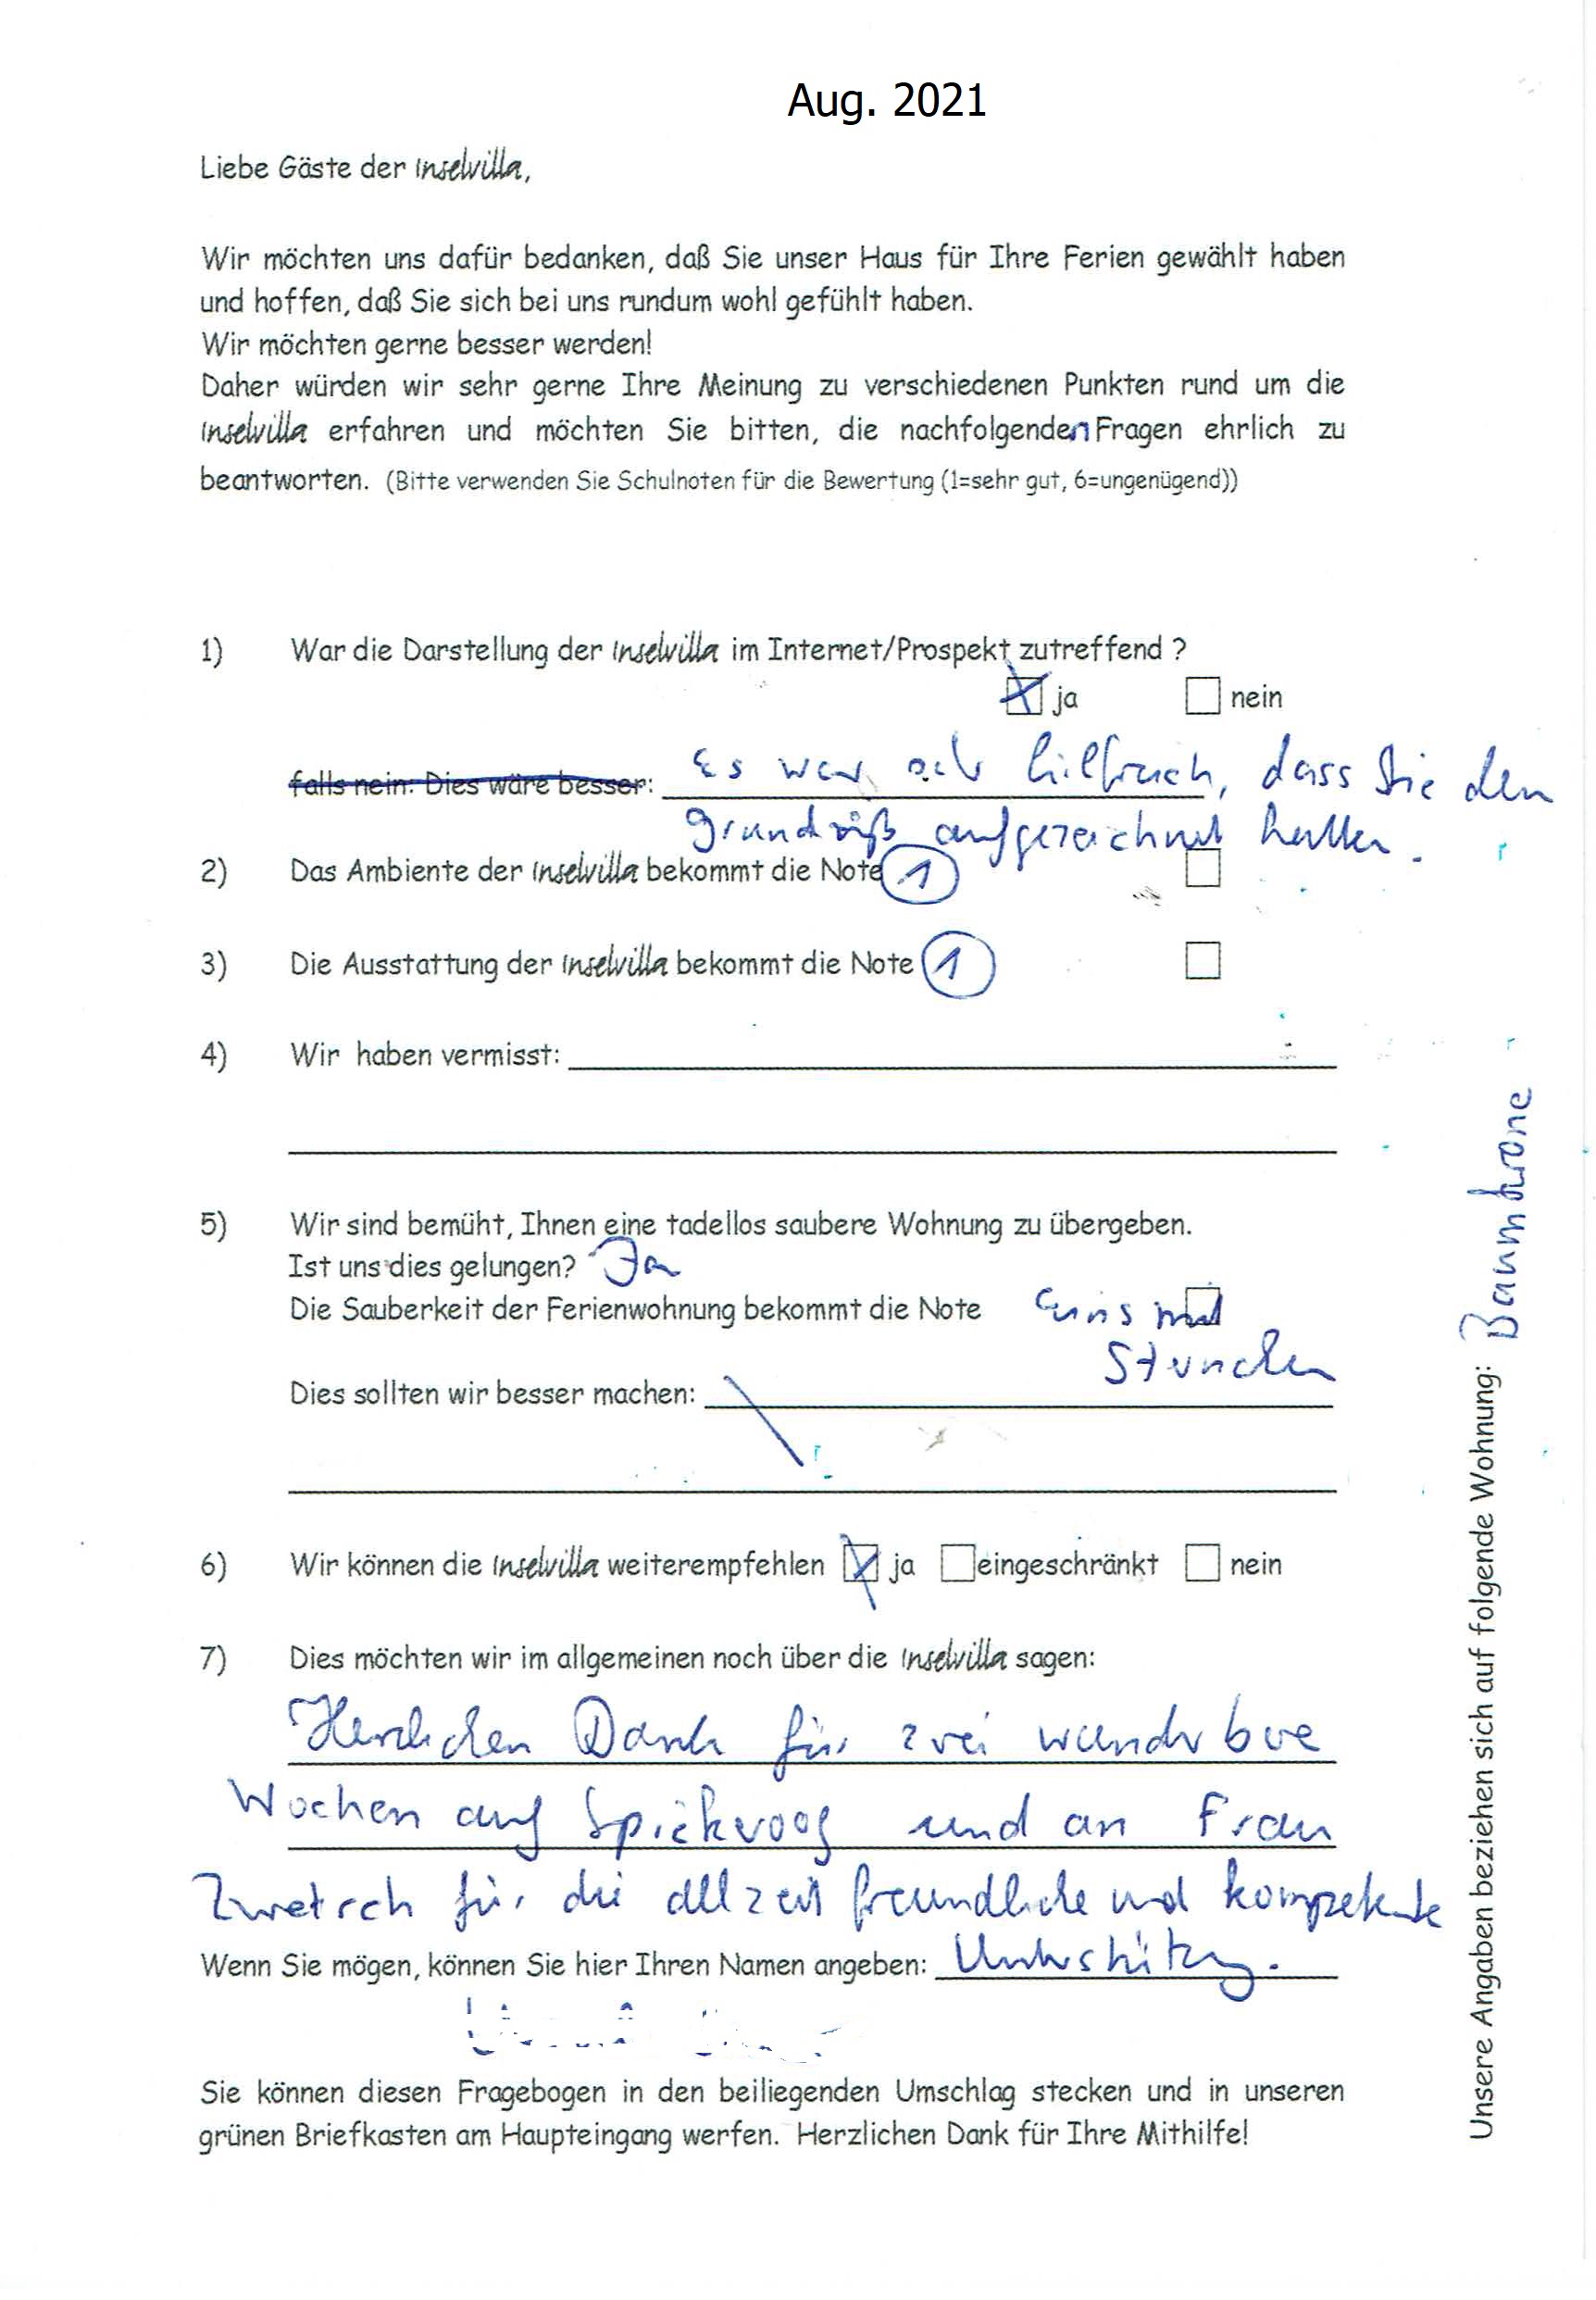 Aug. 2021
Liebe Gäste der Inselvilla,
Wir möchten uns dafür bedanken, daß Sie unser Haus für Ihre Ferien gewählt haben
und hoffen, daß Sie sich bei uns rundum wohl gefühlt haben.
Wir möchten gerne besser werden!
Daher würden wir sehr gerne Ihre Meinung zu verschiedenen Punkten rund um die
Inselvilla erfahren und möchten Sie bitten, die nachfolgenden Fragen ehrlich zu
beantworten. (Bitte verwenden Sie Schulnoten für die Bewertung (1=sehr gut, 6=ungenügend))
1) War die Darstellung der Inselvilla im Internet/Prospekt zutreffend ?
ja nein
falls nein: Dies wäre besser: Es war sehr hilfreich, dass Sie den
Grundriß aufgezeichnet hatten.
2) Das Ambiente der Inselvilla bekommt die Note 1
3) Die Ausstattung der Inselvilla bekommt die Note 1
4) Wir haben vermisst:
5) Wir sind bemüht, Ihnen eine tadellos saubere Wohnung zu übergeben.
Ist uns dies gelungen? Ja
Die Sauberkeit der Ferienwohnung bekommt die Note Eins mit
Sternchen
Dies sollten wir besser machen:
6) Wir können die Inselvilla weiterempfehlen ja eingeschränkt nein
7) Dies möchten wir im allgemeinen noch über die Inselvilla sagen:
Herzlichen Dank für zwei wunderbare
Wochen auf Spiekeroog und an Frau
Zwetsch für die allzeit freundliche und kompetente
Wenn Sie mögen, können Sie hier Ihren Namen angeben: Unterstützung.
Sie können diesen Fragebogen in den beiliegenden Umschlag stecken und in unseren
grünen Briefkasten am Haupteingang werfen. Herzlichen Dank für Ihre Mithilfe!
Unsere Angaben beziehen sich auf folgende Wohnung: Baumkrone